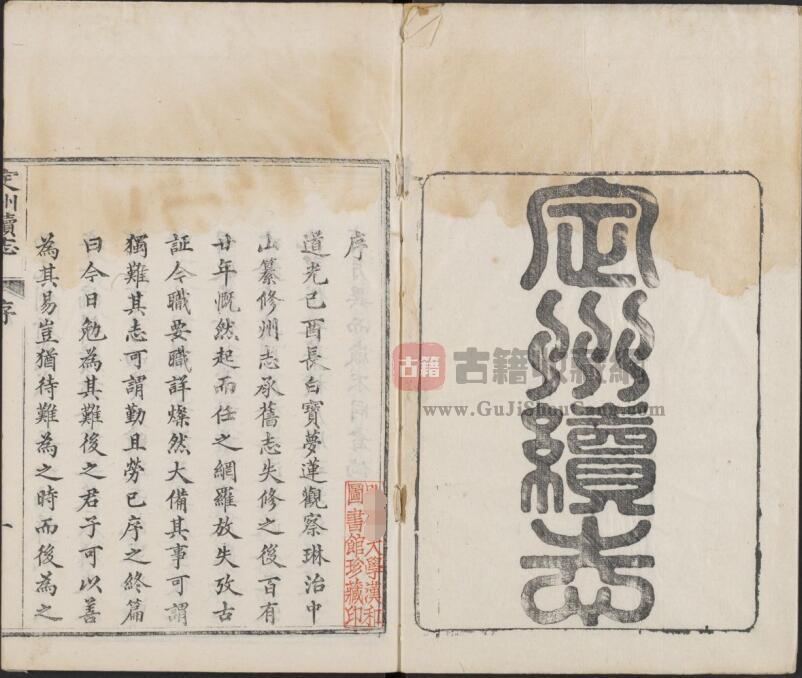 定州續志
古籍
www.GuJiShouCang.com
序
道光己酉長白寶夢蓮觀察琳治中
山纂修州志承舊志失修之後百有
廿年慨然起而任之網羅放失攷古
証今職要職詳燦然大備其事可謂
獨難其志可謂勤且勞已序之終篇
曰今日勉為其難後之君子可以善
為其易豈猶待難為之時而後為之
定州續志
序
一
大學漢和
圖書館珍藏印